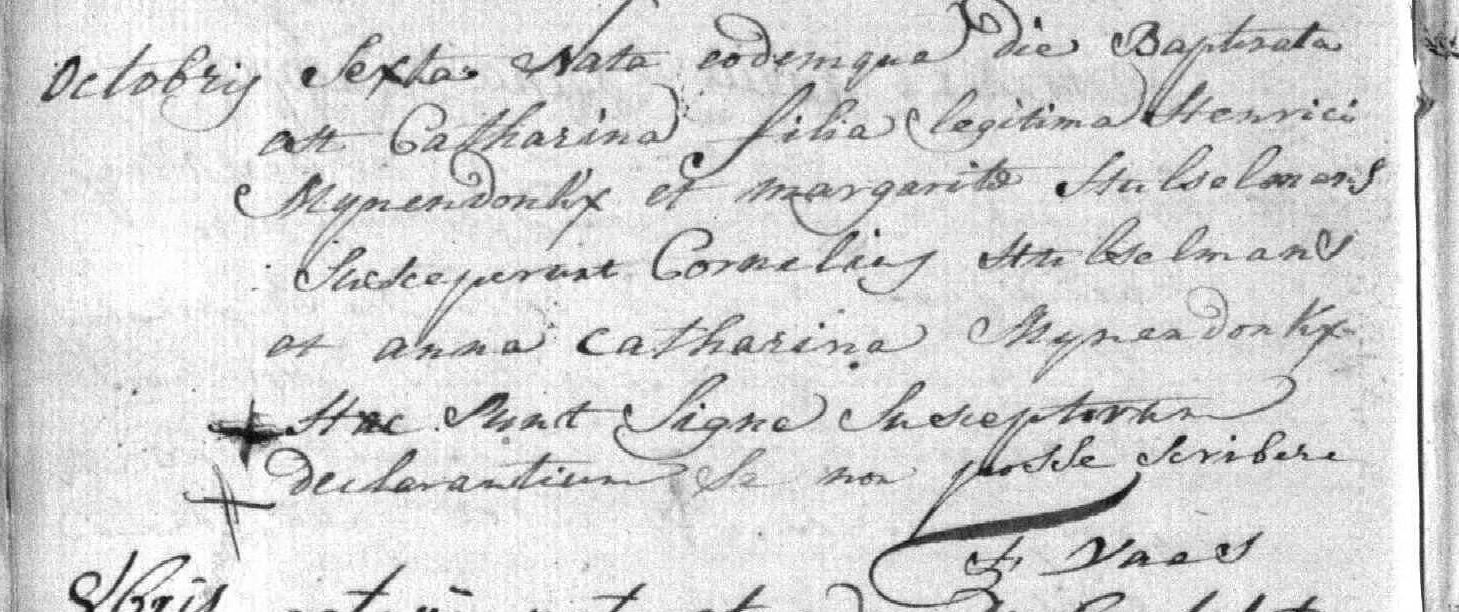 Octobris Sexta Nata eodemque die Baptisata
est Catharina filia legitima Henrici
Mynendonkx et margarita Hulselmans
Susceperunt Cornelius Hulselmans
et anna Catharina Mynendonkx
+ Haec sunt Signa Susceptorum
+ declarantium se non posse scribere
F Vaes
8bris